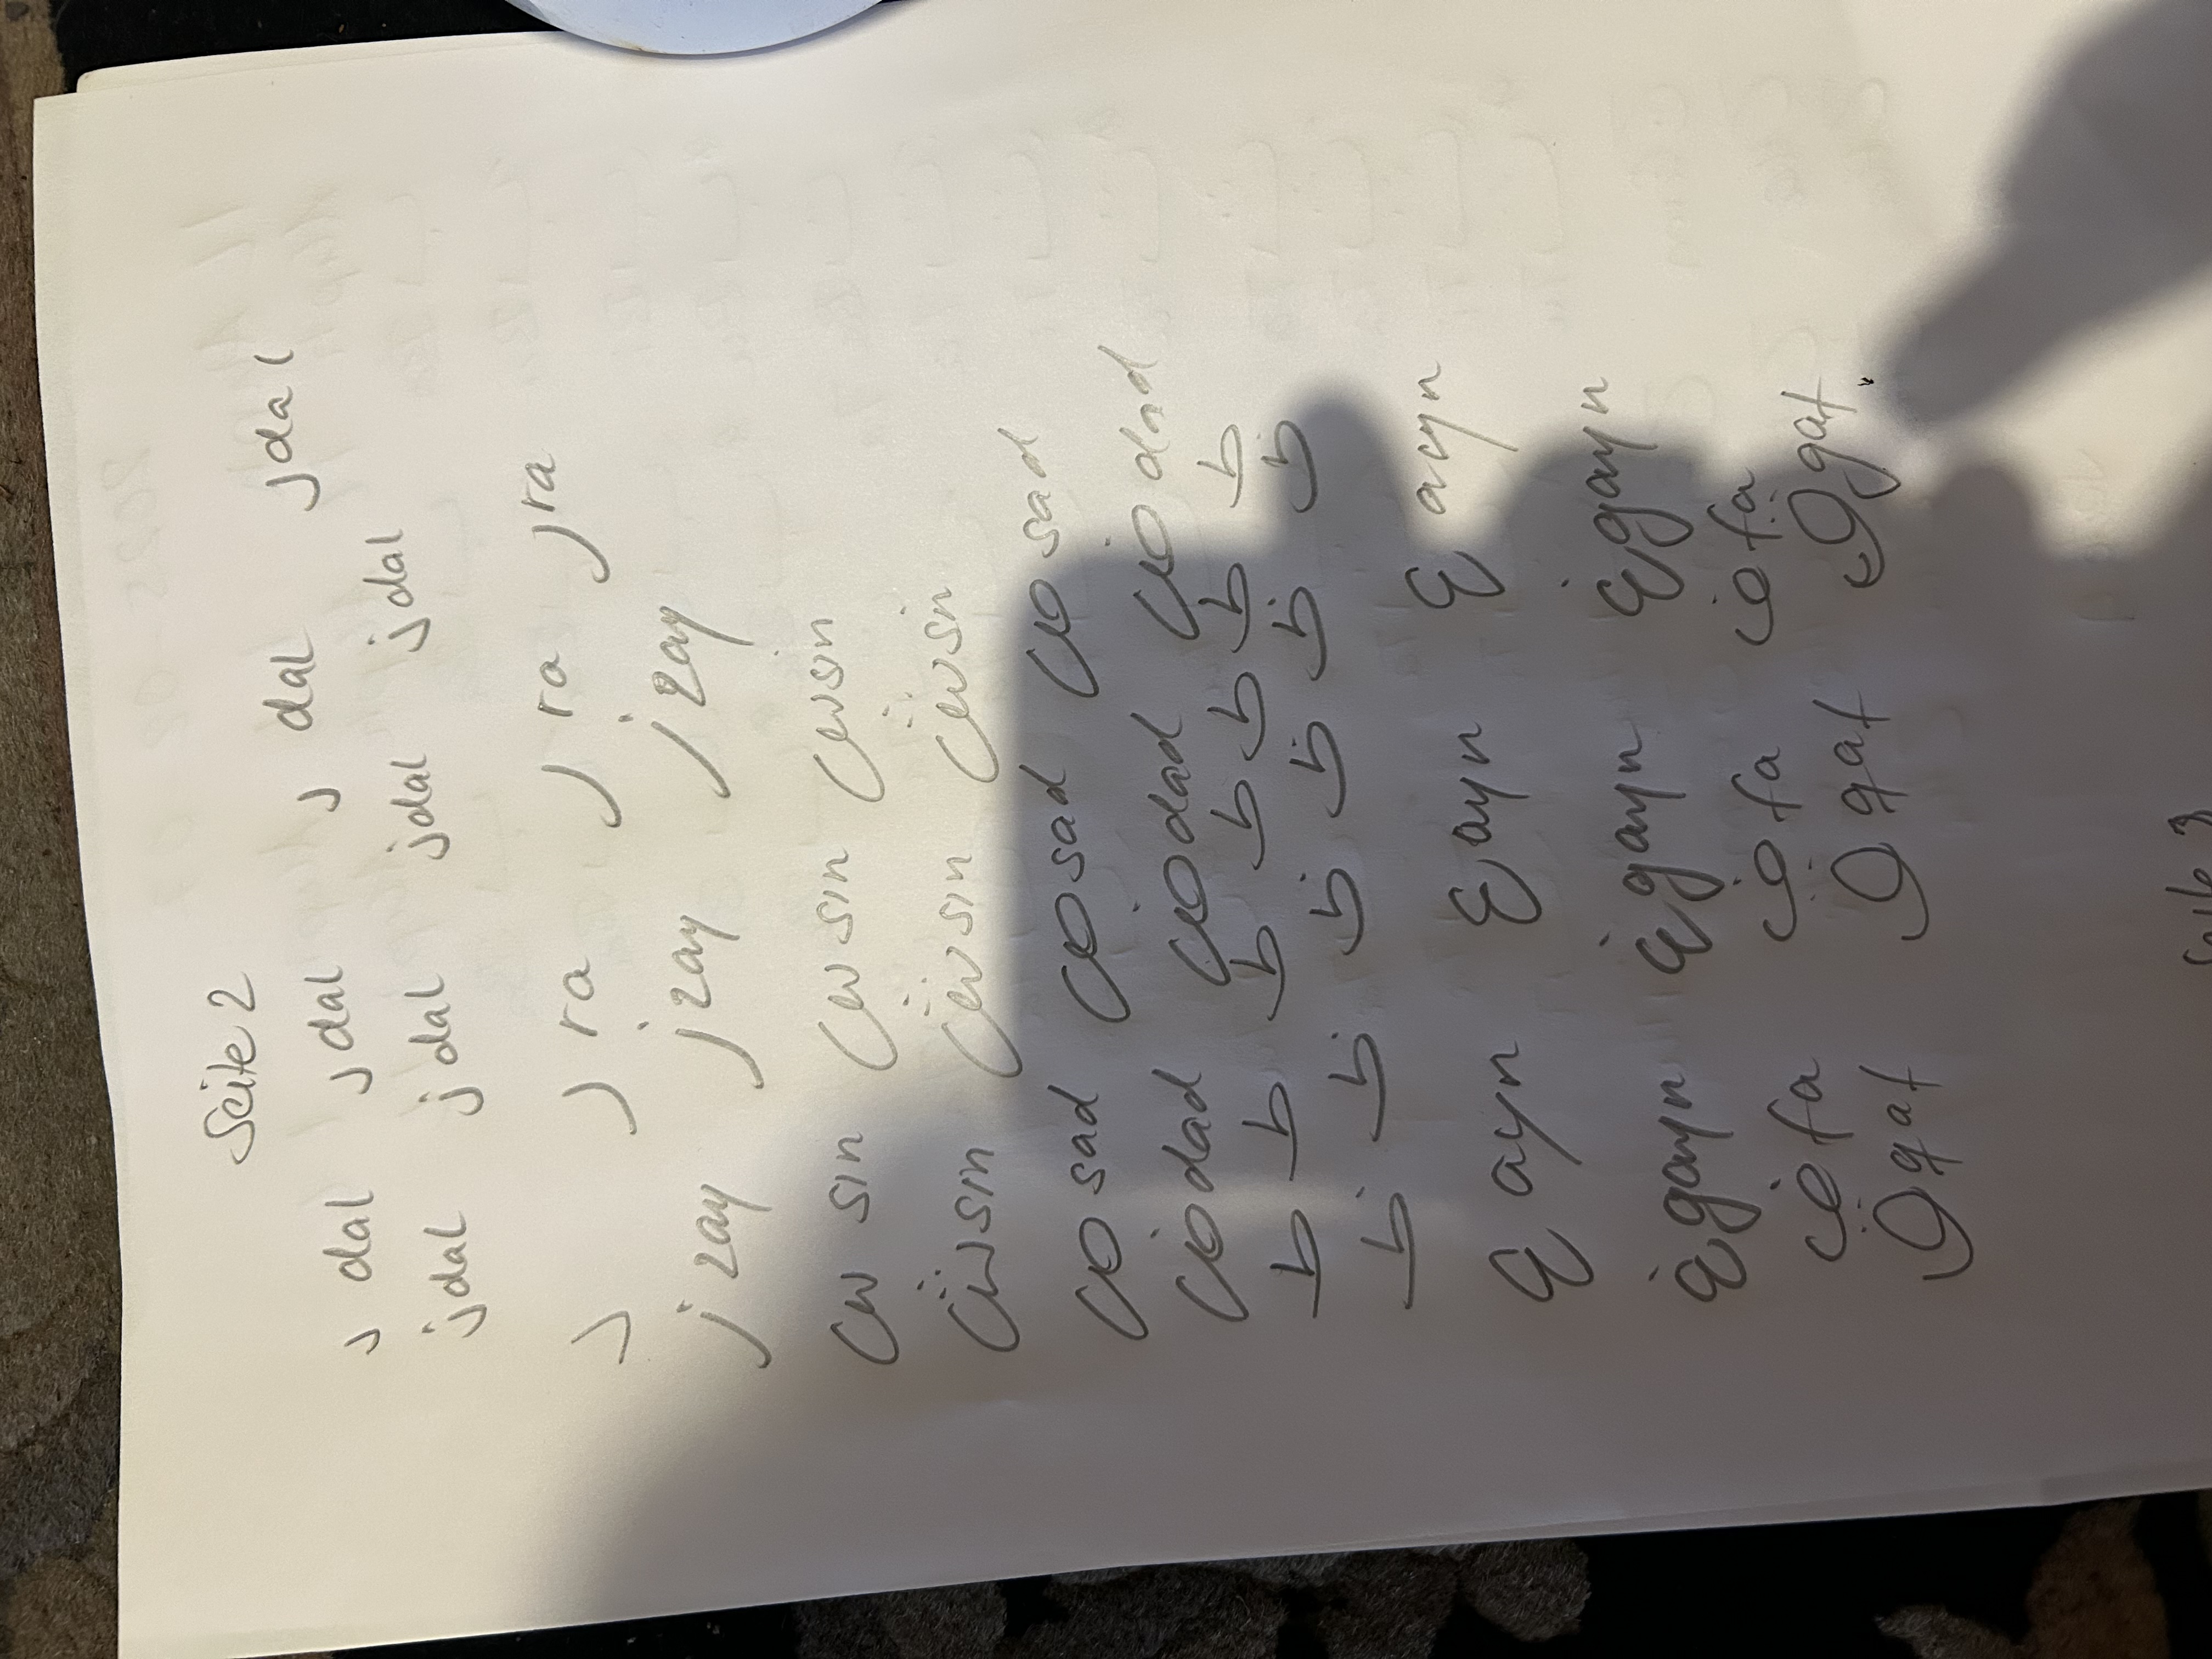 Seite 2
د dal د dal د dal د dal
ذ dal ذ dal ذ dal ذ dal
ر ر ra ر ra ر ra
ز zay ز zay ز zay
س sin س sin س sin
ش sin ش sin ش sin
ص sad ص sad ص sad
ض dad ض dad ض dad
ط ط ط ط ط ط ط
ظ ظ ظ ظ ظ ظ
ع ayn ع ayn ع ayn
غ gayn غ gayn غ gayn
ف fa ف fa ف fa
ق qaf ق qaf ق qaf
Seite 3